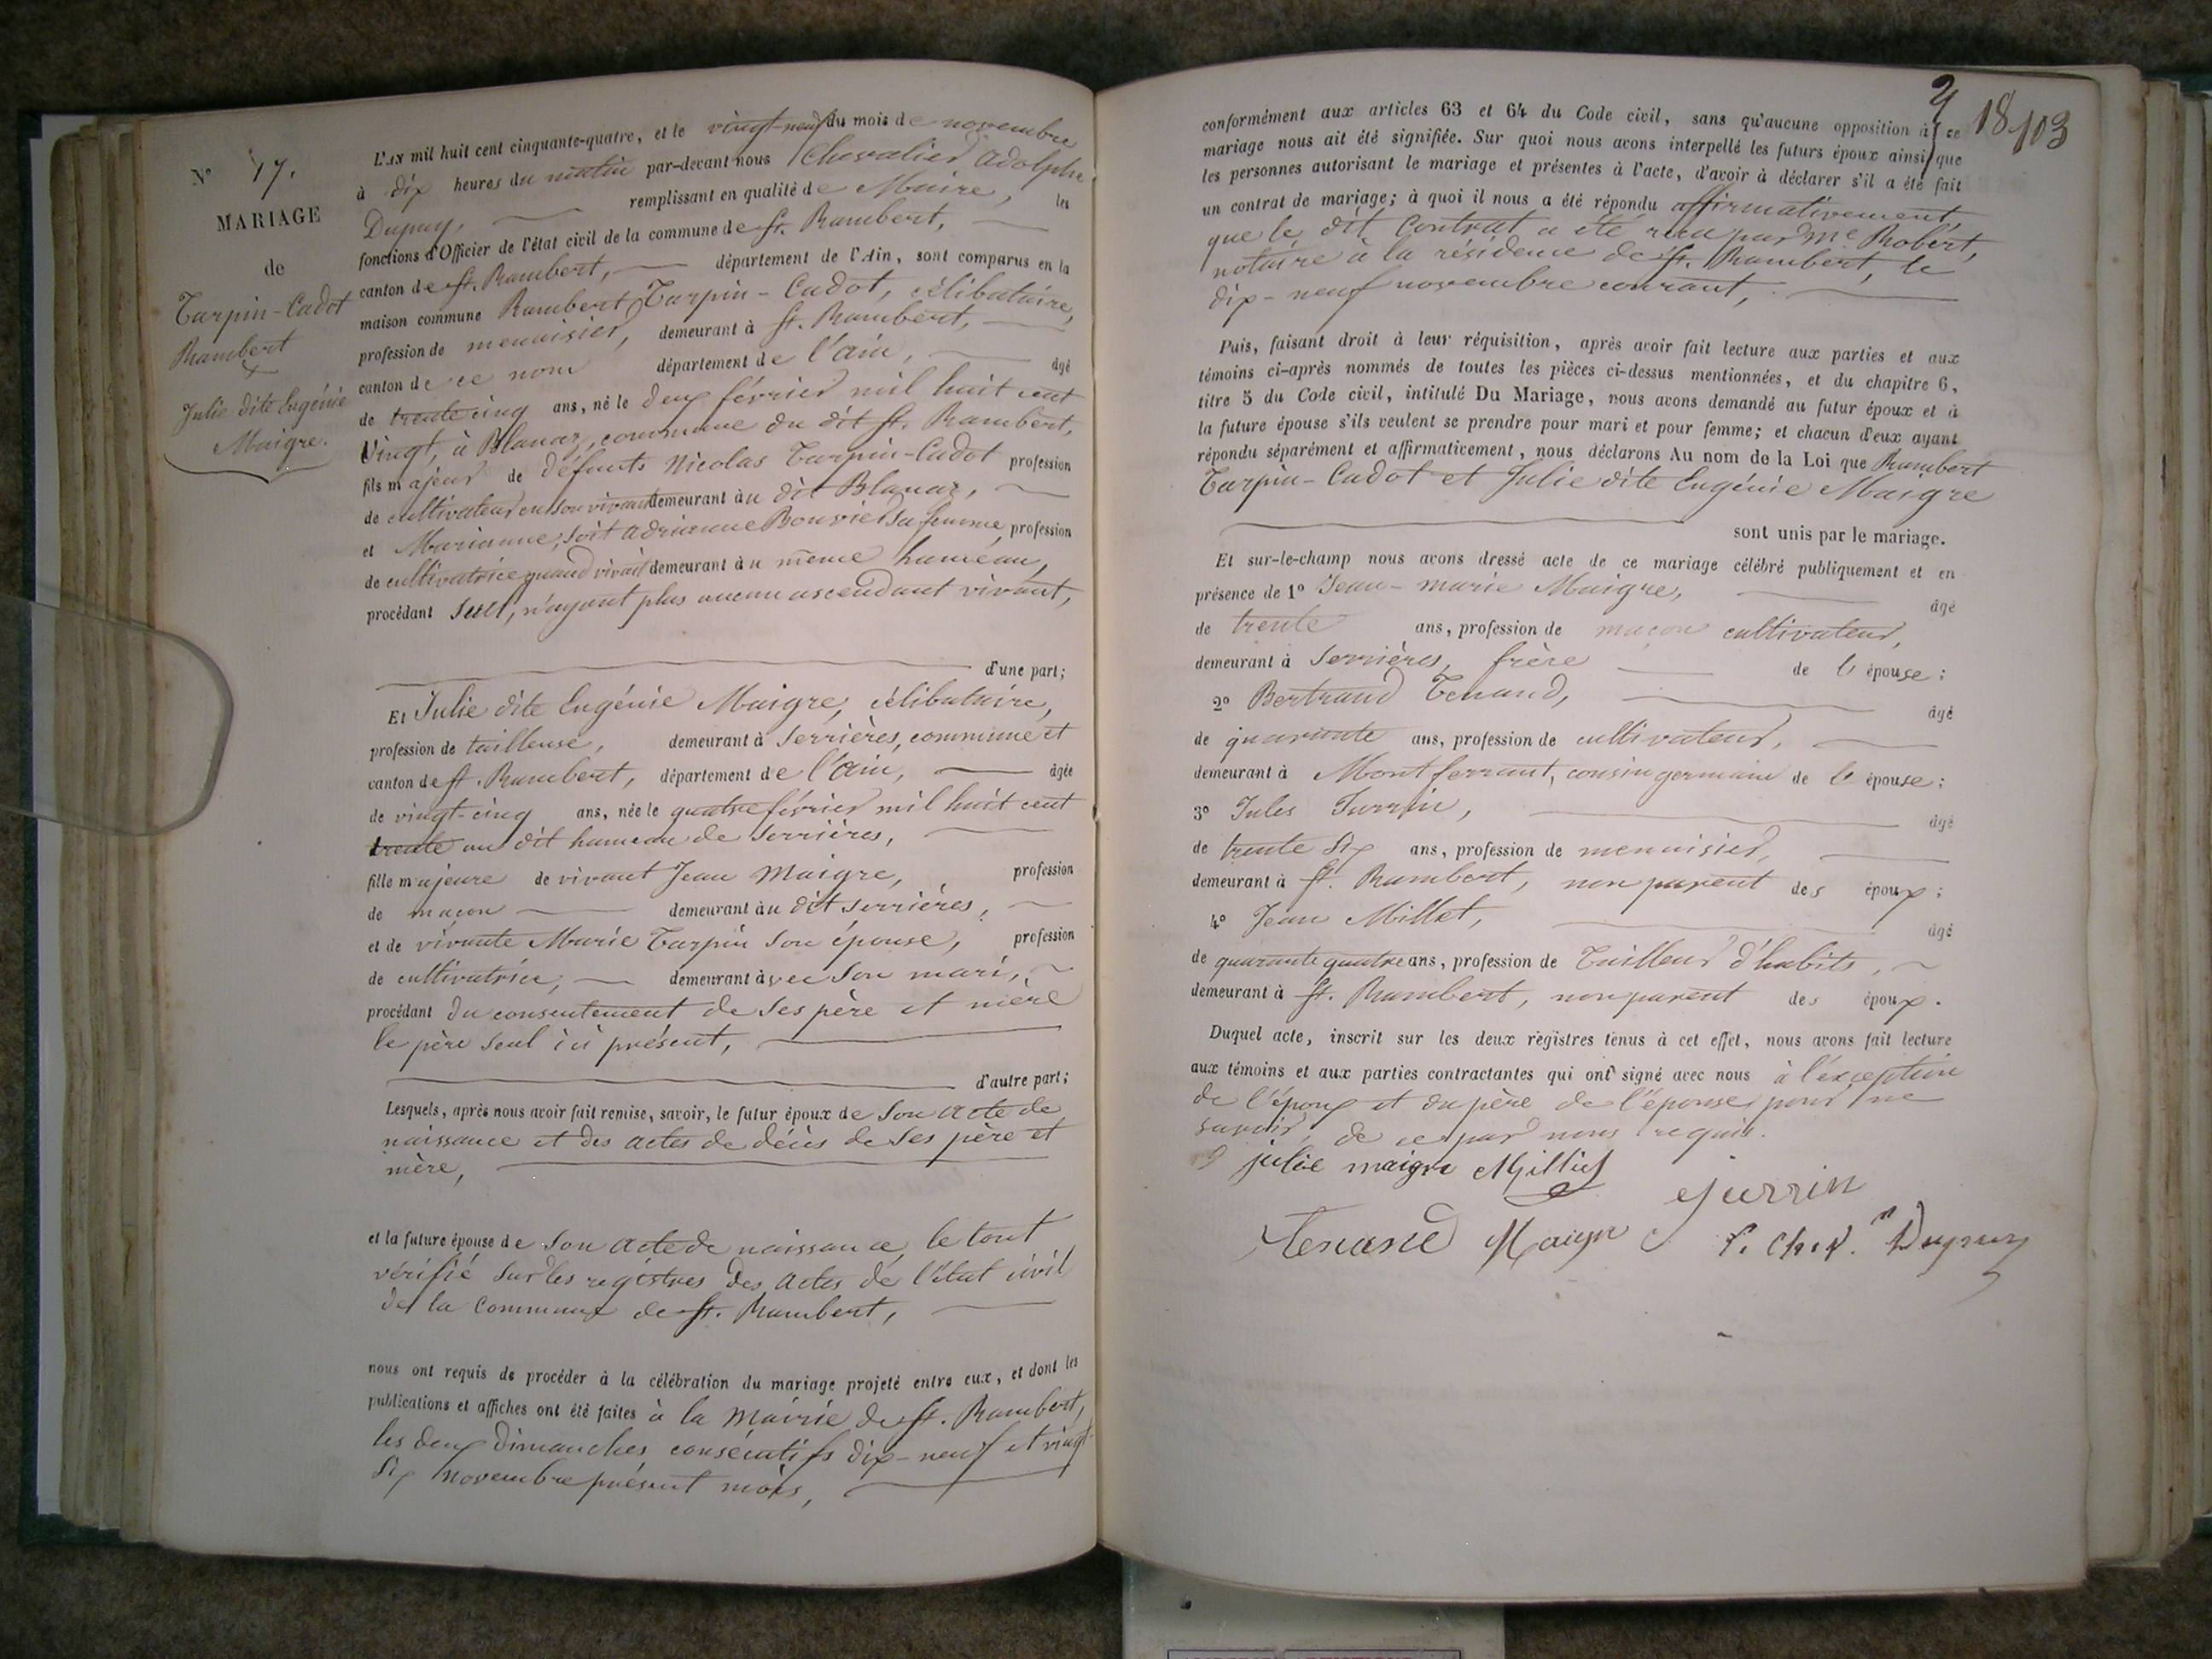 N° 17.
MARIAGE
de
Turpin-Cadot
Rambert
&
Julie dite Eugénie
Maigre.
L'AN mil huit cent cinquante-quatre, et le vingt-neuf du mois de novembre
à dix heures du matin par-devant nous Chevalier Adolphe
Dupuy, remplissant en qualité de Maire, les
fonctions d'Officier de l'état civil de la commune de St. Rambert,
canton de St. Rambert, département de l'Ain, sont comparus en la
maison commune Rambert Turpin-Cadot, célibataire,
profession de menuisier, demeurant à St. Rambert,
canton de ce nom département de l'Ain, âgé
de trente cinq ans, né le deux février mil huit cent
vingt, à Blanaz, commune du dit St. Rambert,
fils majeur de défunts Nicolas Turpin-Cadot profession
de cultivateur en son vivant demeurant au dit Blanaz,
et Marianne, soit Adrianne Bouvier sa femme, profession
de cultivatrice quand vivait demeurant au même hameau,
procédant seul, n'ayant plus aucun ascendant vivant,
d'une part;
Et Julie dite Eugénie Maigre, célibataire,
profession de tailleuse, demeurant à Serrières, commune et
canton de St. Rambert, département de l'Ain, âgée
de vingt-cinq ans, née le quatre février mil huit cent
trente au dit hameau de Serrières,
fille majeure de vivant Jean Maigre, profession
de maçon demeurant au dit Serrières,
et de vivante Marie Turpin son épouse, profession
de cultivatrice, demeurant avec son mari,
procédant du consentement de ses père et mère
le père seul ici présent,
d'autre part;
Lesquels, après nous avoir fait remise, savoir, le futur époux de son acte de
naissance et des actes de décès de ses père et
mère,
et la future épouse de son acte de naissance, le tout
vérifié sur les registres des actes de l'état civil
de la Commune de St. Rambert,
nous ont requis de procéder à la célébration du mariage projeté entre eux, et dont les
publications et affiches ont été faites à la Mairie de St. Rambert,
les deux dimanches consécutifs dix-neuf et vingt-
six novembre présent mois,
18 103
conformément aux articles 63 et 64 du Code civil, sans qu'aucune opposition à ce
mariage nous ait été signifiée. Sur quoi nous avons interpellé les futurs époux ainsi que
les personnes autorisant le mariage et présentes à l'acte, d'avoir à déclarer s'il a été fait
un contrat de mariage; à quoi il nous a été répondu affirmativement,
que le dit Contrat a été reçu par Me Robert,
notaire à la résidence de St. Rambert, le
dix-neuf novembre courant,
Puis, faisant droit à leur réquisition, après avoir fait lecture aux parties et aux
témoins ci-après nommés de toutes les pièces ci-dessus mentionnées, et du chapitre 6,
titre 5 du Code civil, intitulé Du Mariage, nous avons demandé au futur époux et à
la future épouse s'ils veulent se prendre pour mari et pour femme; et chacun d'eux ayant
répondu séparément et affirmativement, nous déclarons Au nom de la Loi que Rambert
Turpin-Cadot et Julie dite Eugénie Maigre
sont unis par le mariage.
Et sur-le-champ nous avons dressé acte de ce mariage célébré publiquement et en
présence de 1° Jean-marie Maigre, âgé
de trente ans, profession de maçon cultivateur,
demeurant à Serrières, frère de l'épouse;
2° Bertrand Tenand, âgé
de quarante ans, profession de cultivateur,
demeurant à Montferrant, cousin germain de l'épouse;
3° Jules Jurrin, âgé
de trente six ans, profession de menuisier,
demeurant à St. Rambert, non parent des époux;
4° Jean Millet, âgé
de quarante quatre ans, profession de Tailleur d'habits,
demeurant à St. Rambert, non parent des époux.
Duquel acte, inscrit sur les deux registres tenus à cet effet, nous avons fait lecture
aux témoins et aux parties contractantes qui ont signé avec nous à l'exception
de l'époux et du père de l'épouse, pour ne
savoir, de ce par nous requis.
julie maigre Milliet
Jurrin
Tenand Maigre Chev. Dupuy